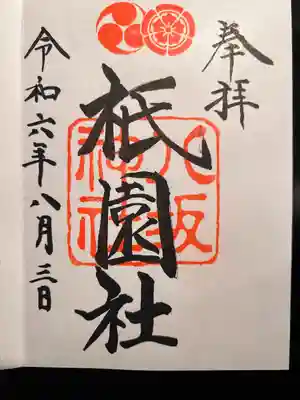 奉拝
祇園社
八坂神社
令和六年八月三日